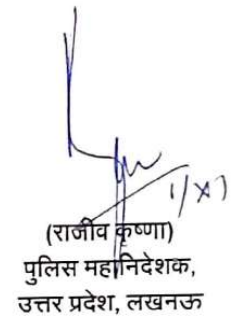 (राजीव कृष्णा)
पुलिस महानिदेशक,
उत्तर प्रदेश, लखनऊ